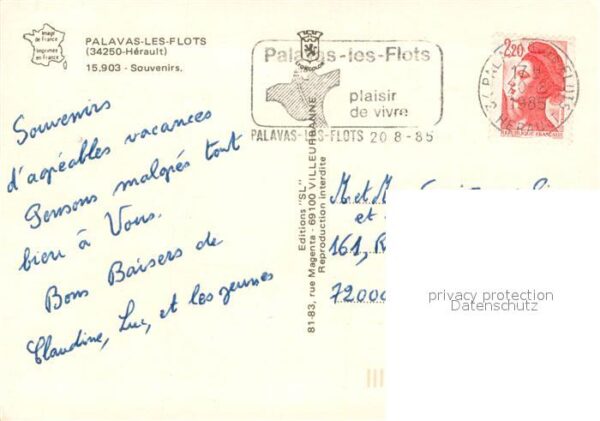 Image
de France
Imprimée
en France
PALAVAS-LES-FLOTS
(34250-Hérault)
15.903 - Souvenirs.
Souvenirs
d'agréables vacances
Pensons malgrés tout
bien à Vous.
Bons Baisers de
Claudine, Luc, et les jeunes
Editions "SL"
81-83, rue Magenta - 69100 VILLEURBANNE
Reproduction interdite
Palavas-les-Flots
plaisir
de vivre
PALAVAS-LES-FLOTS 20-8-85
2,20
REPUBLIQUE FRANÇAISE
34 PALAVAS LES FLOTS
17 H
1985
HERAULT
M et M
et
161, R
72000
privacy protection
Datenschutz